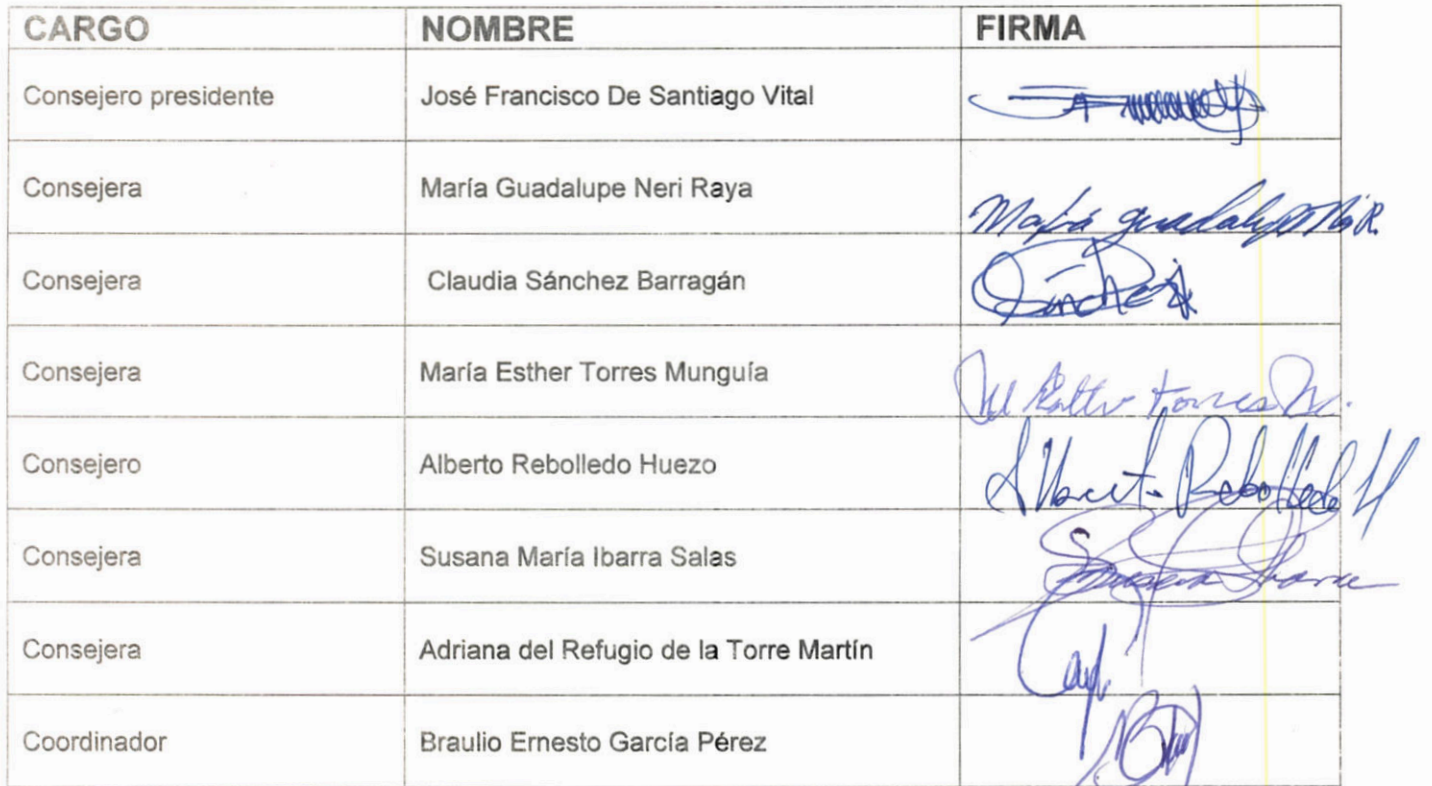 CARGO NOMBRE FIRMA
Consejero presidente José Francisco De Santiago Vital
Consejera María Guadalupe Neri Raya María guadalupe N R.
Consejera Claudia Sánchez Barragán Sánchez
Consejera María Esther Torres Munguía Ma Esther Torres M.
Consejero Alberto Rebolledo Huezo Alberto Rebolledo H
Consejera Susana María Ibarra Salas Susana Ibarra
Consejera Adriana del Refugio de la Torre Martín
Coordinador Braulio Ernesto García Pérez